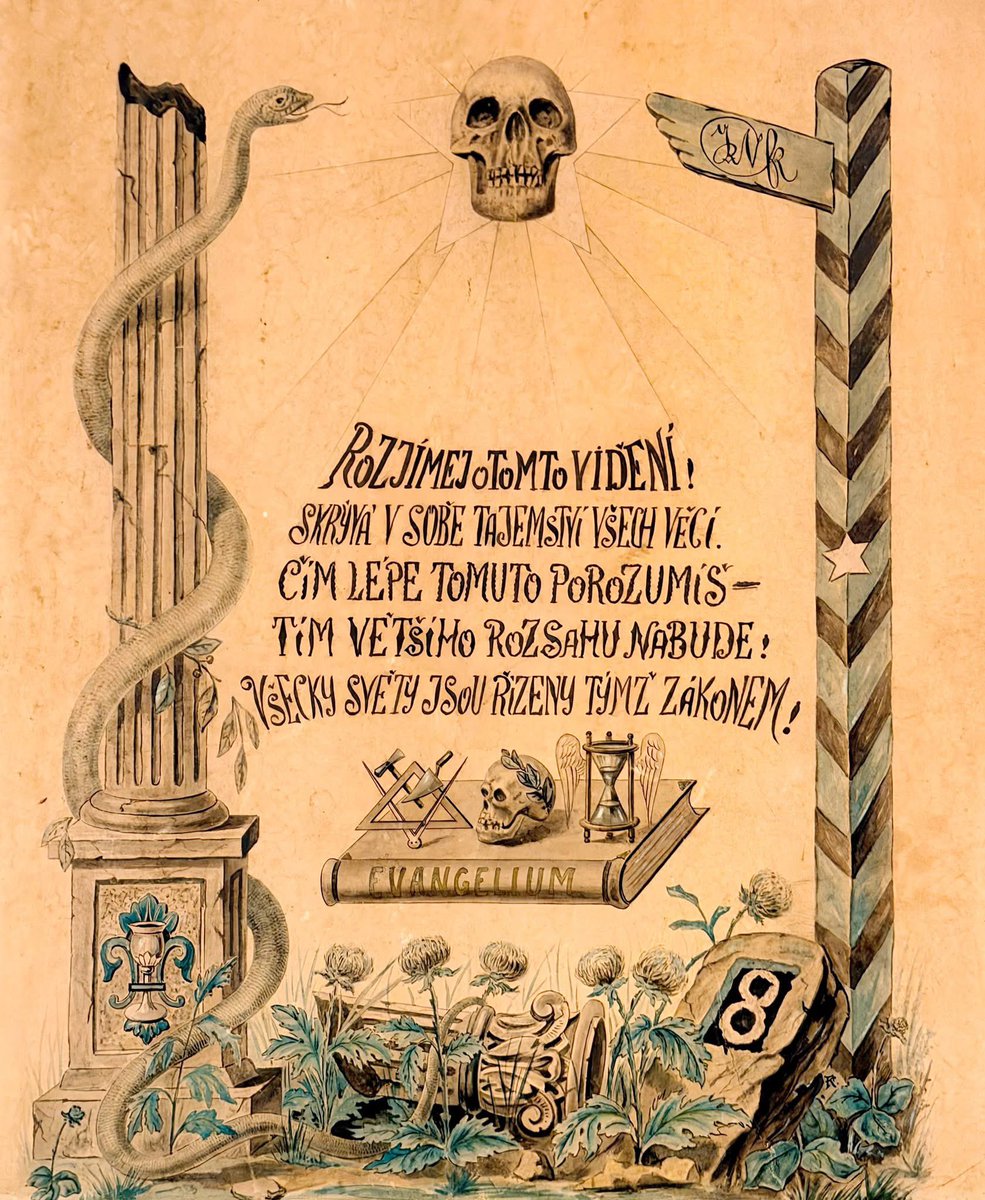 JzNfk
ROZJÍMEJ O TOMTO VIĎENÍ!
SKRÝVÁ V SOBĚ TAJEMSTVÍ VŠECH VĚCÍ.
ČÍM LÉPE TOMUTO POROZUMÍŠ –
TÍM VĚTŠÍHO ROZSAHU NABUDE!
VŠECKY SVĚTY JSOU ŘÍZENY TÝMŽ ZÁKONEM!
EVANGELIUM
8